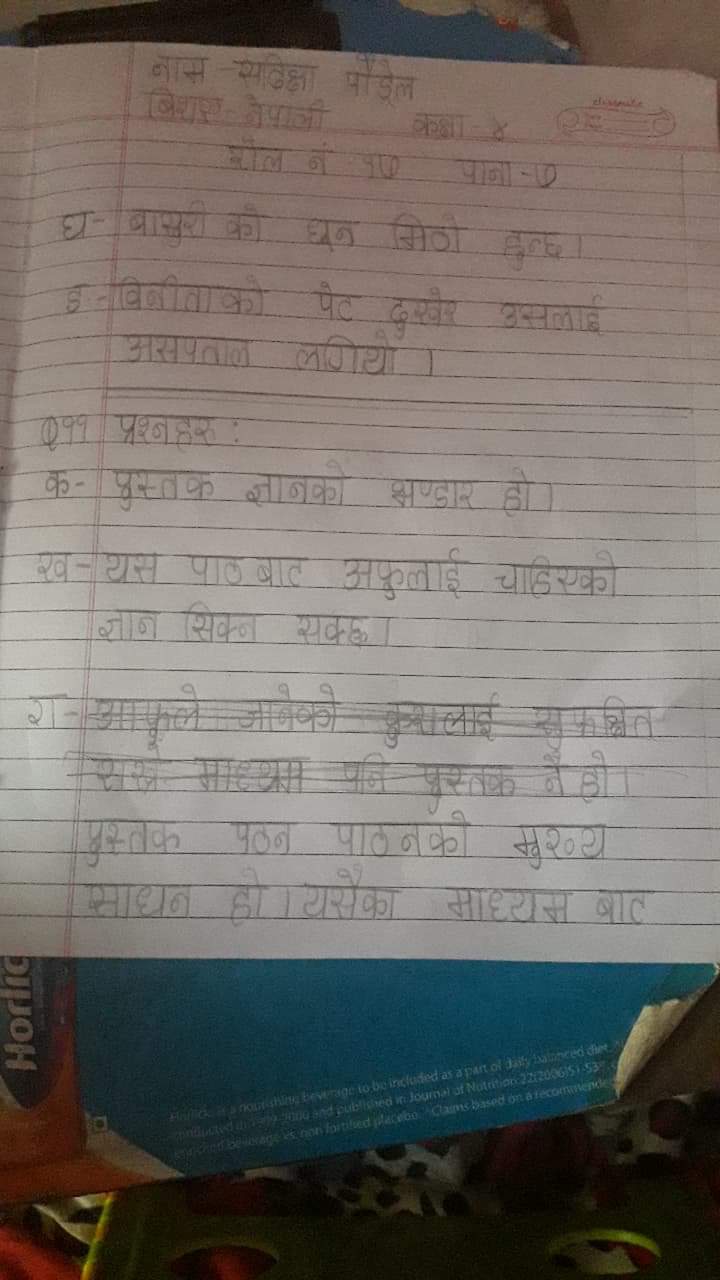 नाम - समिक्षा पौडेल
classmate
बिषय - नेपाली कक्षा - ४
रोल नं - १७ पाना - ७
घ - बासुरी को धून मिठो हुन्छ।
ङ - विनीताको पेट दुखेर उसलाई
असपताल लगियो।
Q११ प्रश्नहरु :
क - पुस्तक ज्ञानको भण्डार हो।
ख - यस पाठ बाट अफुलाई चाहिएको
ज्ञान सिक्न सक्छ।
ग - आफूले जानेको कुरालाई सुरक्षित
राख्ने माध्यम पनि पुस्तक नै हो।
पुस्तक पठन पाठनको मुख्य
साधन हो। यसैका माध्यम बाट
Horlic
Horlicks is a nourishing beverage to be included as a part of daily balanced diet.
conducted in and published in Journal of Nutrition 22(2006)S1-S3
beverage vs. non fortified placebo. Claims based on a recommende